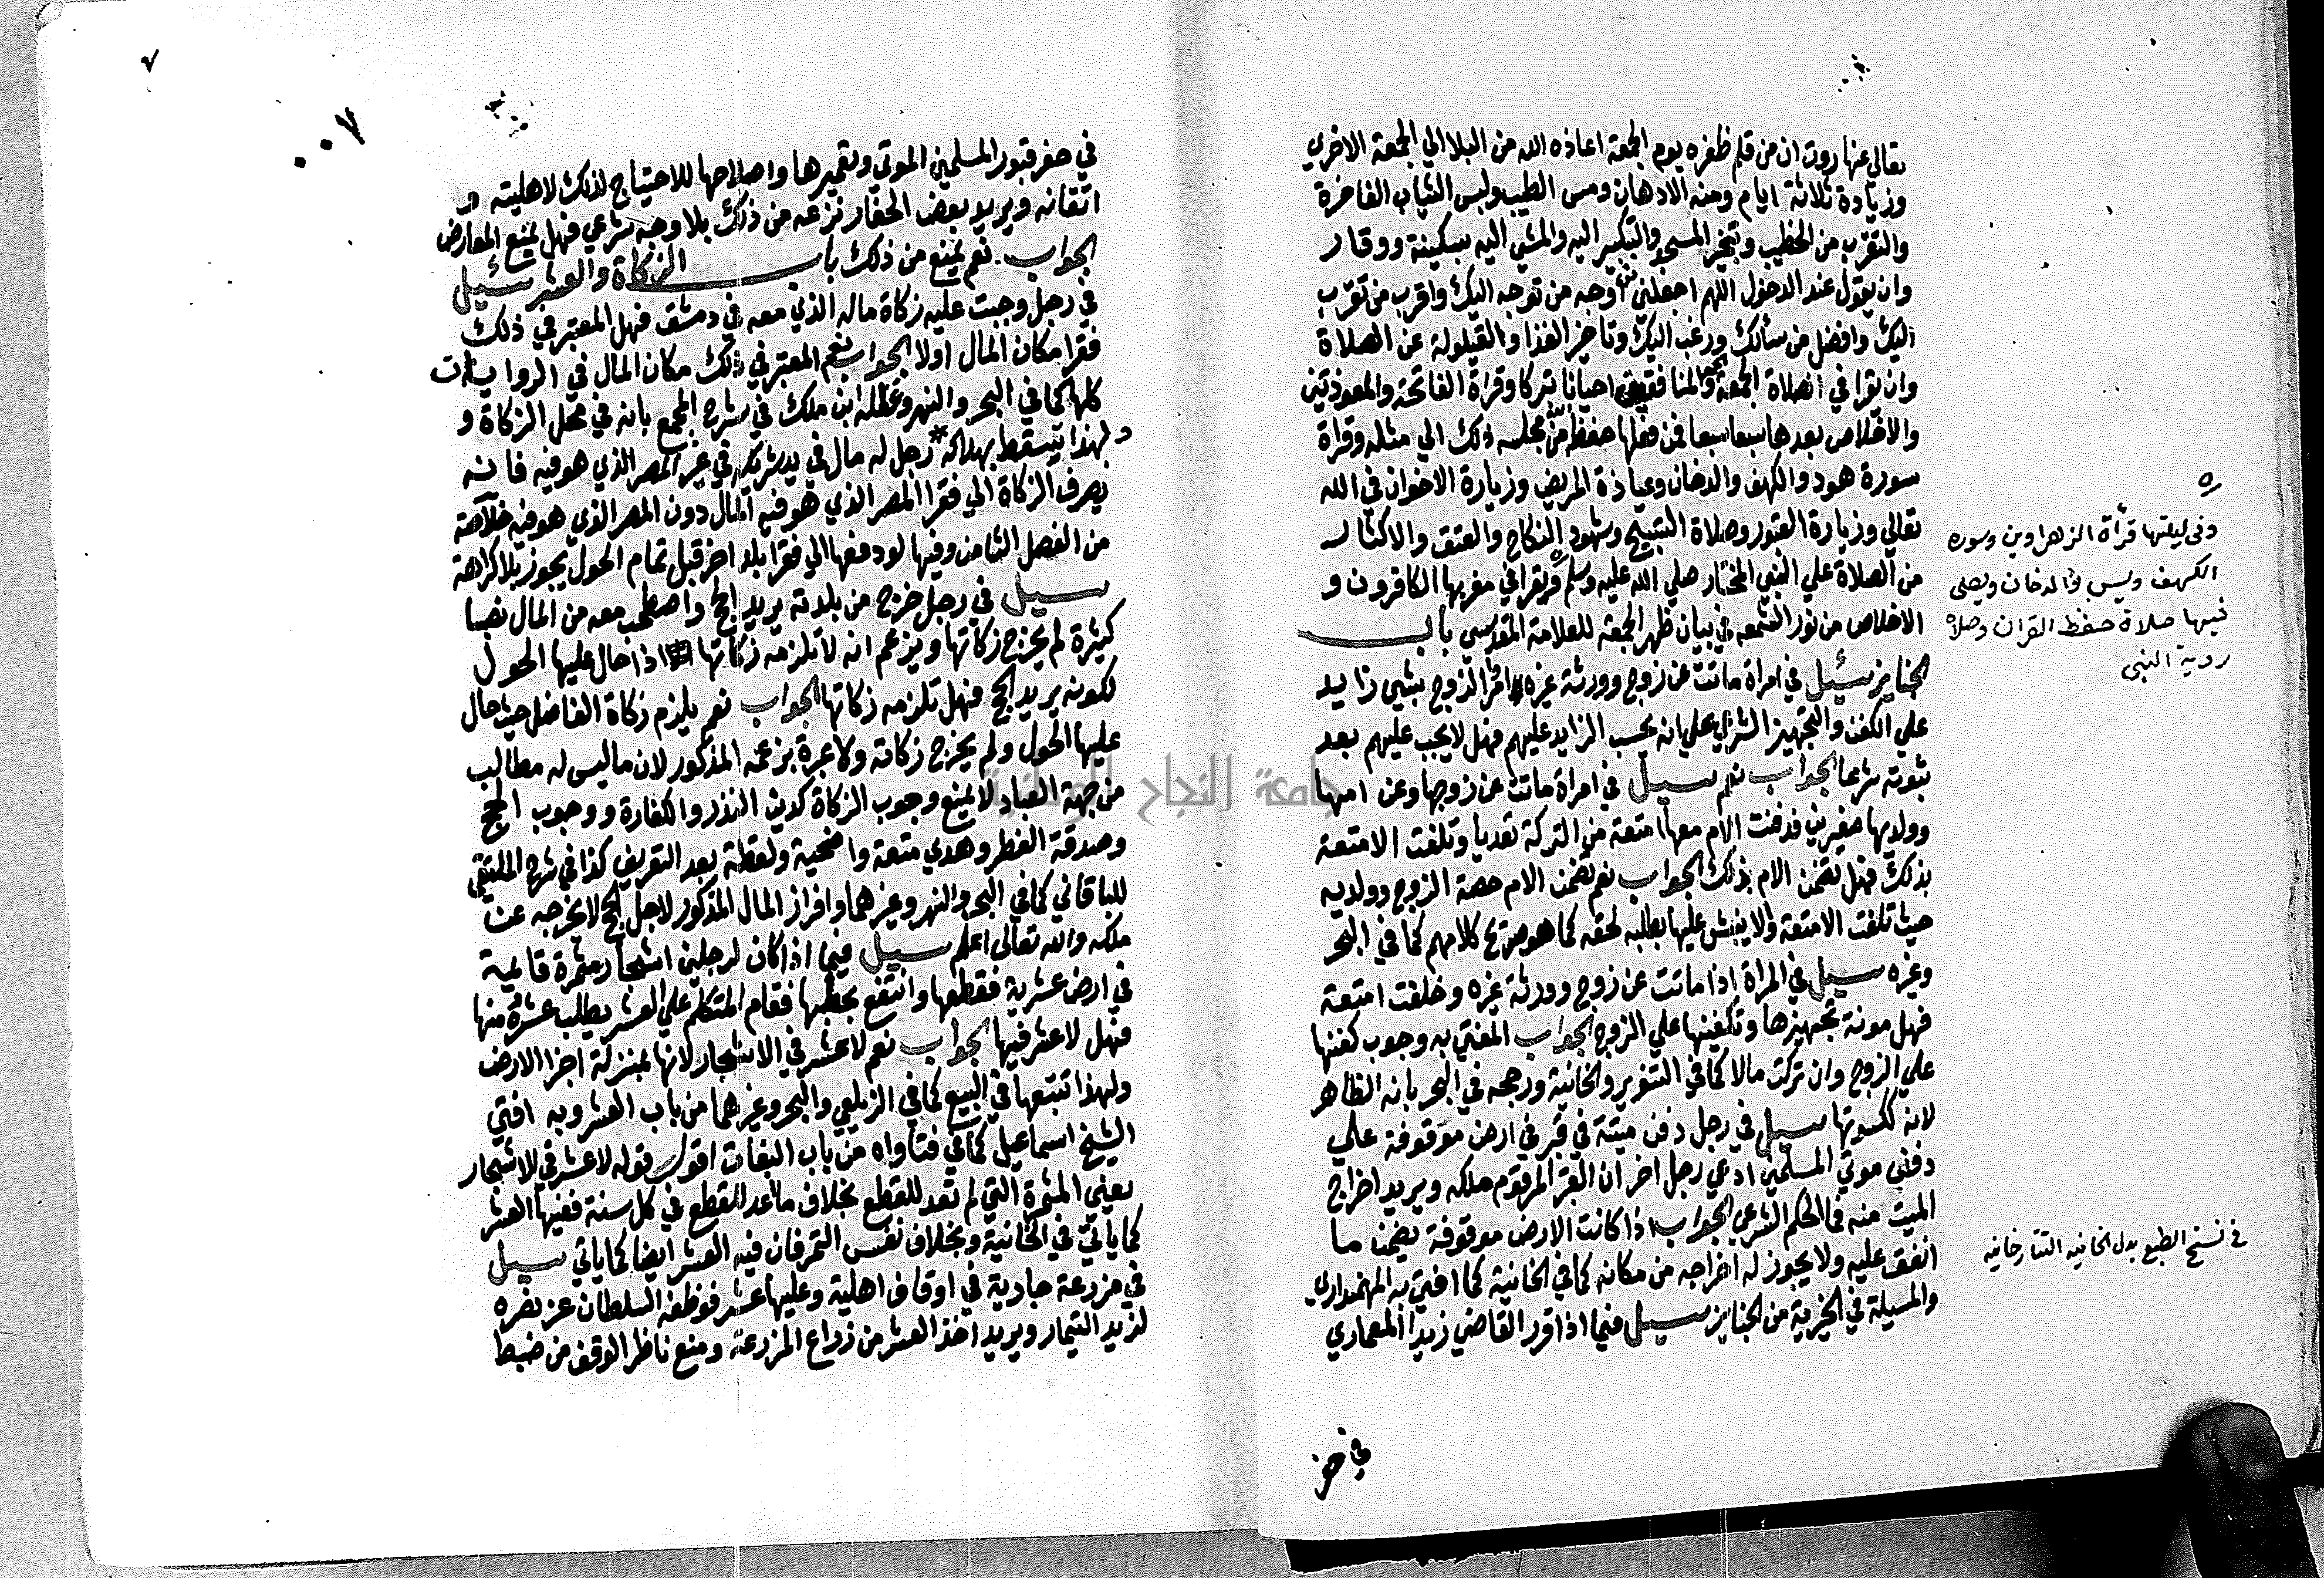 تعالى عنها روت ان من قلم ظفره يوم الجمعة اعاذه الله من البلا الي الجمعة الاخري
وزيادة ثلاثة ايام ومنه الادهان ومس الطيب ولبس الثياب الفاخرة
والتقرب من الخطيب وتبخير المسجد والتبكير اليه والمشي اليه بسكينة ووقار
وان يقول عند الدخول اللهم اجعلني اوجه من توجه اليك واقرب من تقرب
اليك وافضل من سألك ورغب اليك وتاخير الغذا والقيلولة عن الصلاة
وان يقرا في الصلاة الجمعة والمنافقين احيانا تبركا وقراة الفاتحة والمعوذتين
والاخلاص بعدها سبعا سبعا فمن فعلها حفظ من مجلسه ذلك الي مثله وقراة
سورة هود والكهف والدخان وعيادة المريض وزيارة الاخوان في الله
تعالي وزيارة القبور وصلاة التسبيح وشهود النكاح والعتق والاكثار
من الصلاة علي النبي المختار صلي الله عليه وسلم ويقرا في مغربها الكافرون و
الاخلاص من نور الشمعه في بيان ظهر الجمعة للعلامة المقدسي باب
الجنايز سئيل في امراة ماتت عن زوج وورثة غيره امر الزوج بشي زايد
علي الكفن والتجهيز الشرعي علي انه يحسب الزايد عليهم فهل لا يجب عليهم بعد
ثبوته شرعا الجواب نعم سيل في امراة ماتت عن زوجها وعن امها
وولديها صغيرين فدفنت الام معها امتعة من التركة تعديا وتلفت الامتعة
بذلك فهل تضمن الام بذلك الجواب نعم تضمن الام حصة الزوج وولديه
حيث تلفت الامتعة ولا ينبش عليها بطلبه لحقه كما هو صريح كلامهم كما في البحر
وغيره سيل في المراة اذا ماتت عن زوج وورثة غيره وخلفت امتعة
فهل مونة تجهيزها وتكفينها علي الزوج الجواب المفتي به وجوب كفنها
علي الزوج وان تركت مالا كما في التنوير والخانية ورجحه في البحر بانه الظاهر
لانه ككسوتها سيل في رجل دفن ميتة في قبر في ارض موقوفة علي
دفن موتي المسلمين ادعي رجل اخر ان القبر المرقوم ملكه ويريد اخراج
الميت منه فما الحكم الشرعي الجواب اذا كانت الارض موقوفة يضمن ما
انفق عليه ولا يجوز له اخراجه من مكانه كما في الخانية كما افتي به المهمنداري
والمسيلة في الخيرية من الجنايز سيل فيما اذا قرر القاضي زيدا المعماري
في حفر
وفى ليلتها قرأة الزهراوين وسوره
الكهف ويس والدخان ويصلى
فيها صلاة حفظ القران وصلاه
روية النبى
في نسخ الطبع بدل الخانيه التتارخانيه
٧
٠٠٧
في حفر قبور المسلمين الموتي وتعميرها واصلاحها للاحتياج لذلك لاهليته و
اتقانه ويريد بعض الحفار نزعه من ذلك بلا وجه شرعي فهل يمنع المعارض
الجواب نعم يمنع من ذلك باب الزكاة والعشر سئيل
في رجل وجبت عليه زكاة ماله الذي معه في دمشق فهل المعتبر في ذلك
فقرا مكان المال اولا الجواب نعم المعتبر في ذلك مكان المال في الروايات
كلها كما في البحر والنهر وعلله ابن ملك في شرح المجمع بانه في محل الزكاة و
لهذا تسقط بهلاكه * رجل له مال في يد شريكه في غير المصر الذي هو فيه فانه
يصرف الزكاة الي فقرا المصر الذي هو فيه المال دون المصر الذي هو فيه خلاصة
من الفصل الثامن وفيها لو دفعها الي فقرا بلد اخر قبل تمام الحول يجوز بلا كراهة
سيل في رجل خرج من بلدته يريد الحج واصطحب معه من المال نصبا
كثيرة لم يخرج زكاتها ويزعم انه لا تلزمه زكاتها اذا حال عليها الحول
لكونه يريد الحج فهل تلزمه زكاتها الجواب نعم يلزم زكاة الفاضل حيث حال
عليها الحول ولم يخرج زكاته ولا عبرة بزعمه المذكور لان ما ليس له مطالب
من جهة العباد لا يمنع وجوب الزكاة كدين النذر والكفارة ووجوب الحج
وصدقة الفطر وهدي متعة واضحية ولقطة بعد التعريف كذا في شرح الملتقي
للباقاني كما في البحر والنهر وغيرهما وافراز المال المذكور لاجل الحج لا يخرجه عن
ملكه والله تعالى اعلم سيل فيما اذا كان لرجلين اشجار مثمرة قايمة
في ارض عشرية فقطعها وانتفع بحطبها فقام المتكلم علي العشر يطلب عشره منها
فهل لا عشر فيها الجواب نعم لا عشر في الاشجار لانها بمنزلة اجزا الارض
ولهذا تتبعها في البيع كما في الزيلعي والبحر وغيرهما من باب العشر وبه افتي
الشيخ اسماعيل كما في فتاواه من باب النفقات اقول قوله لا عشر في الاشجار
يعني المثمرة التي لم تعد للقطع بخلاف ما اعد للقطع في كل سنة ففيها العشر
كما ياتي في الخانية وبخلاف نفس الثمر فان فيه العشر ايضا كما ياتي سيل
في مزرعة جارية في اوقاف اهلية وعليها عشر فوظفه السلطان عز نصره
لزيد التيمار ويريد اخذ العشر من زراع المزرعة ومنع ناظر الوقف من ضبط
جامعة النجاح الوطنية